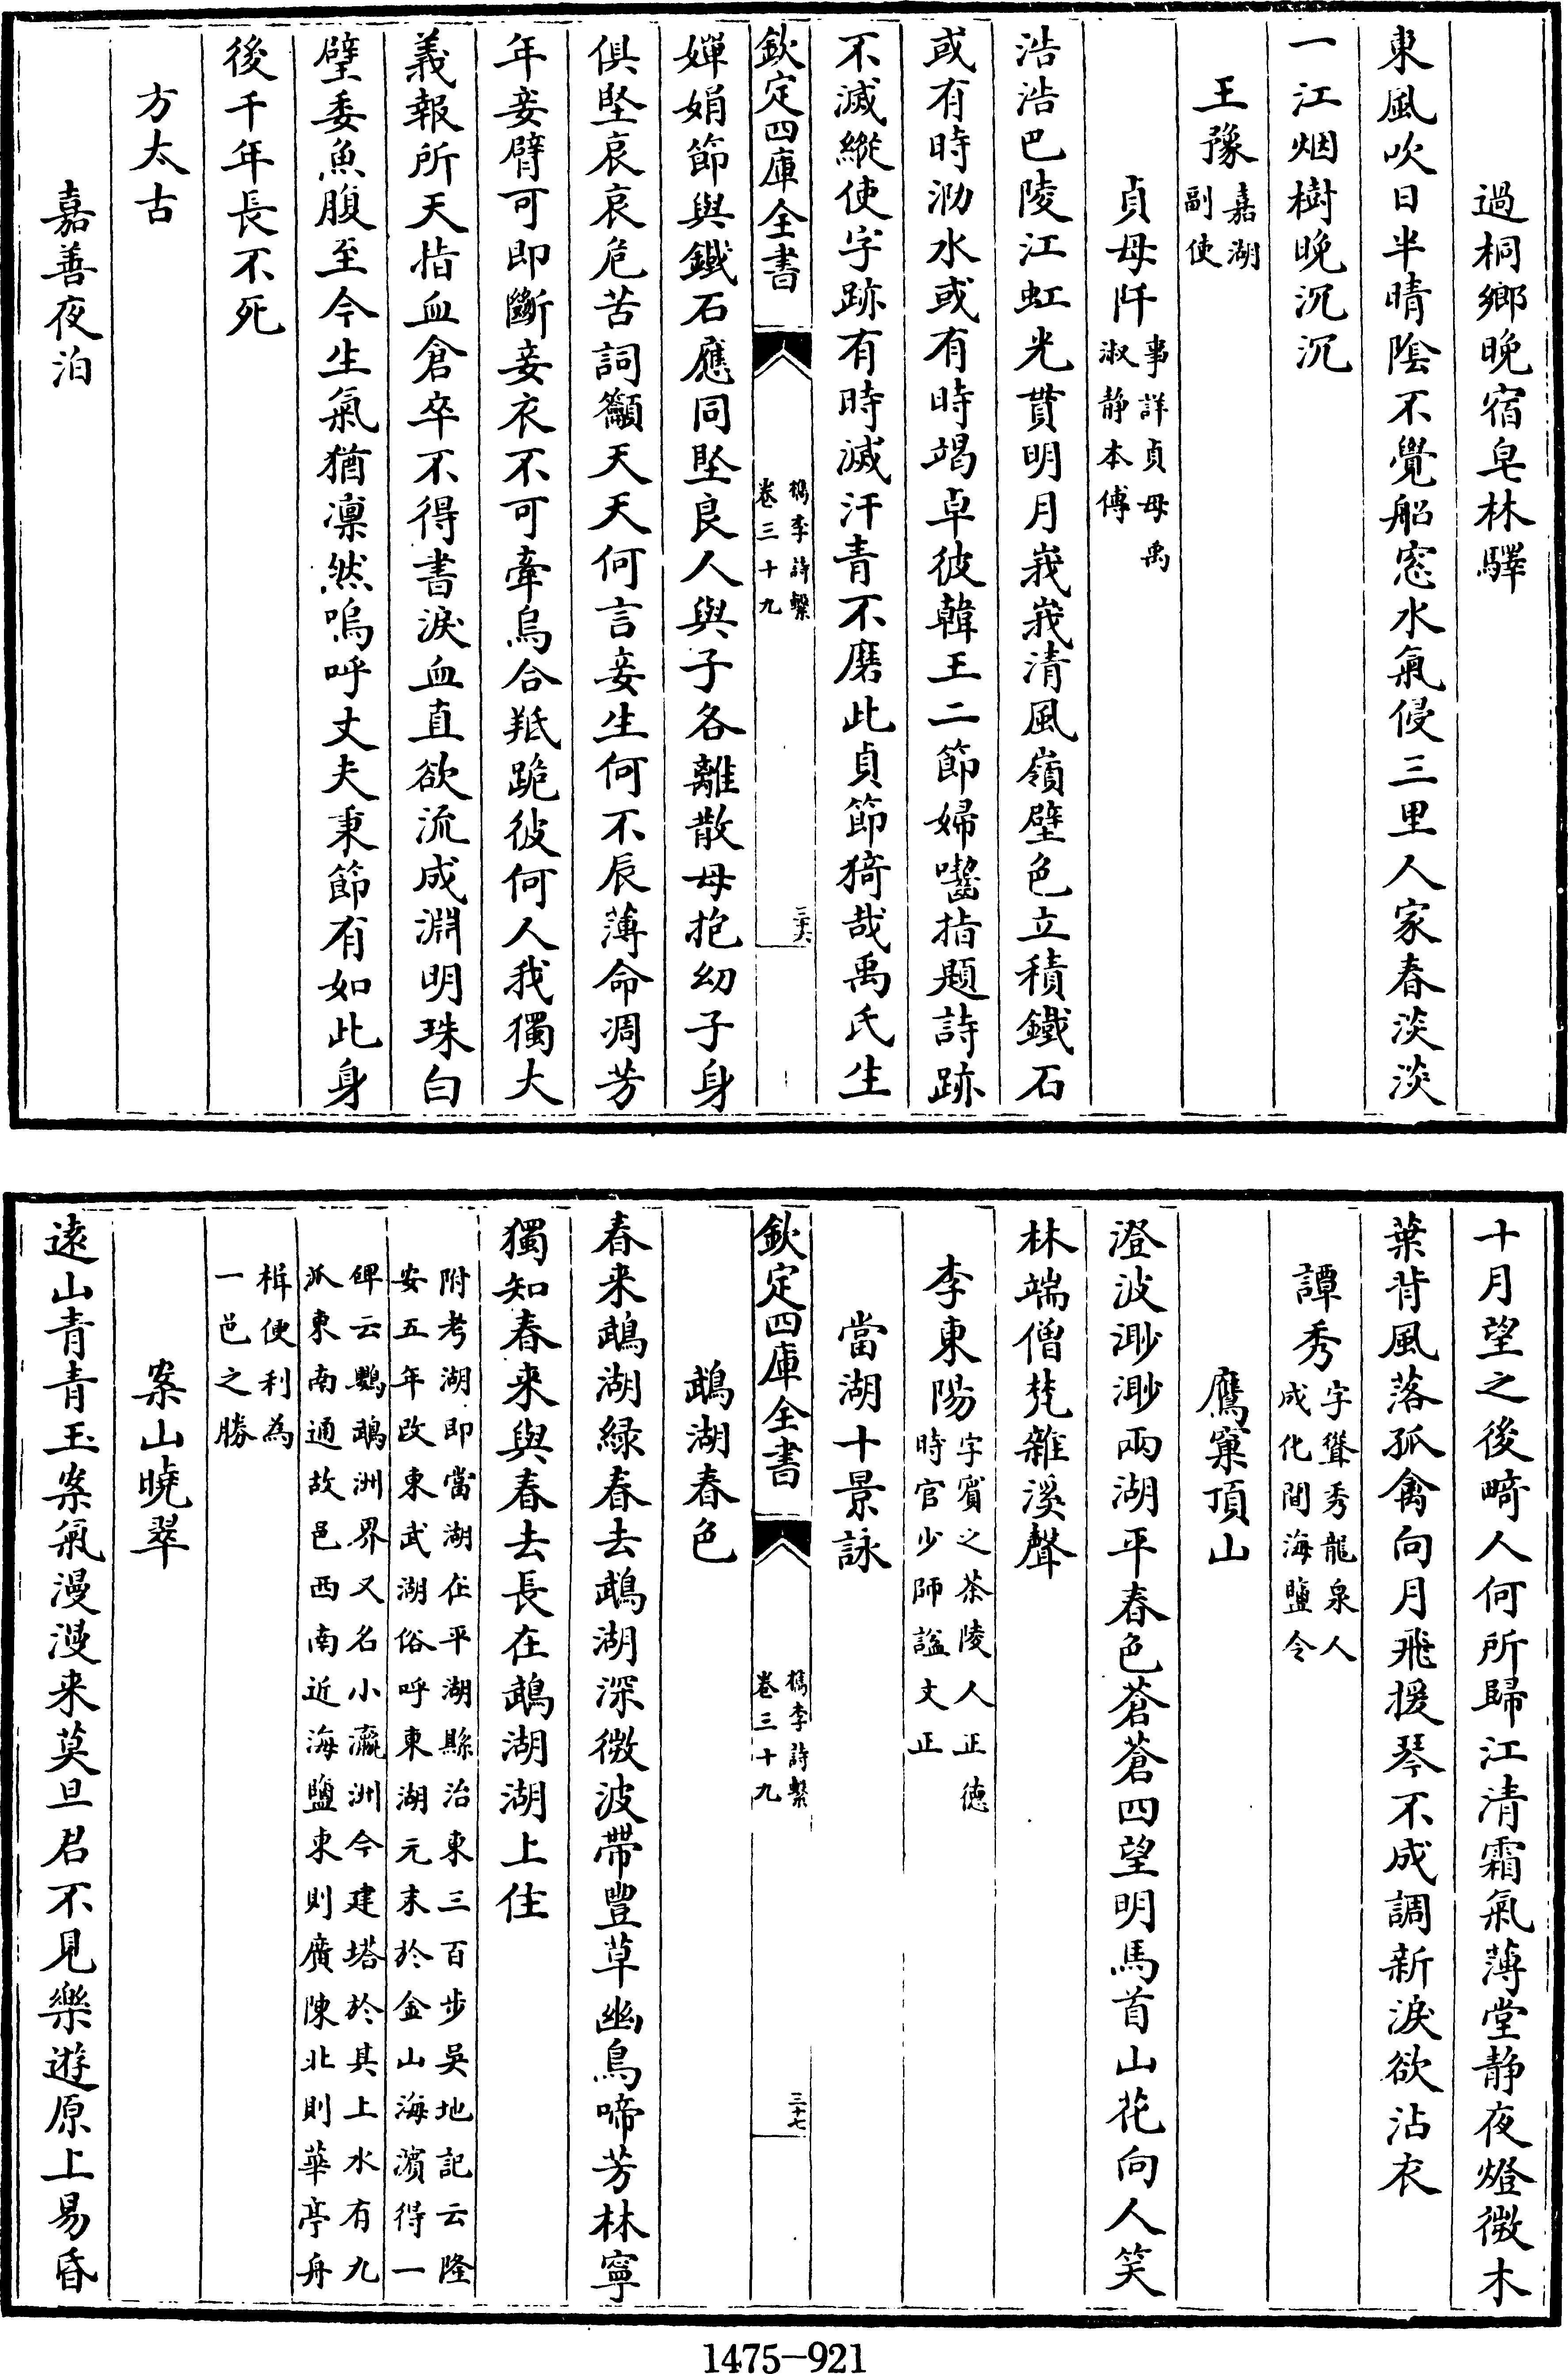 過桐鄉晚宿皂林驛
東風吹日半晴陰不覺船窓水氣侵三里人家春淡淡
一江烟樹晚沉沉
王豫嘉湖
副使
貞母阡事詳貞母禹
淑静本傳
浩浩巴陵江虹光貫明月峩峩清風嶺壁色立積鐵石
或有時泐水或有時竭卓彼韓王二節婦囓指題詩跡
不滅縱使字跡有時滅汗青不磨此貞節猗哉禹氏生
欽定四庫全書
檇李詩繫
卷三十九
三十六
嬋娟節與鐵石應同堅良人與子各離散母抱幼子身
俱墜哀哀危苦詞籲天天何言妾生何不辰薄命凋芳
年妾臂可即斷妾衣不可牽烏合羝跪彼何人我獨大
義報所天指血倉卒不得書淚血直欲流成淵明珠白
璧委魚腹至今生氣猶凛然嗚呼丈夫秉節有如此身
後千年長不死
方太古
嘉善夜泊
十月望之後畸人何所歸江清霜氣薄堂静夜燈微木
葉背風落孤禽向月飛援琴不成調新淚欲沾衣
譚秀字聳秀龍泉人
成化間海鹽令
鷹窠頂山
澄波渺渺兩湖平春色蒼蒼四望明馬首山花向人笑
林端僧梵雜溪聲
李東陽字賓之茶陵人正德
時官少師諡文正
當湖十景詠
欽定四庫全書
檇李詩繫
卷三十九
三十七
鵡湖春色
春来鵡湖緑春去鵡湖深微波帶豐草幽鳥啼芳林寧
獨知春来與春去長在鵡湖湖上住
附考湖即當湖在平湖縣治東三百步吳地記云隆
安五年改東武湖俗呼東湖元末於金山海濵得一
碑云鸚鵡洲界又名小瀛洲今建塔於其上水有九
派東南通故邑西南近海鹽東則廣陳北則華亭舟
楫便利為
一邑之勝
案山曉翠
遠山青青玉案氣漫漫来莫旦君不見樂遊原上易昏
1475-921